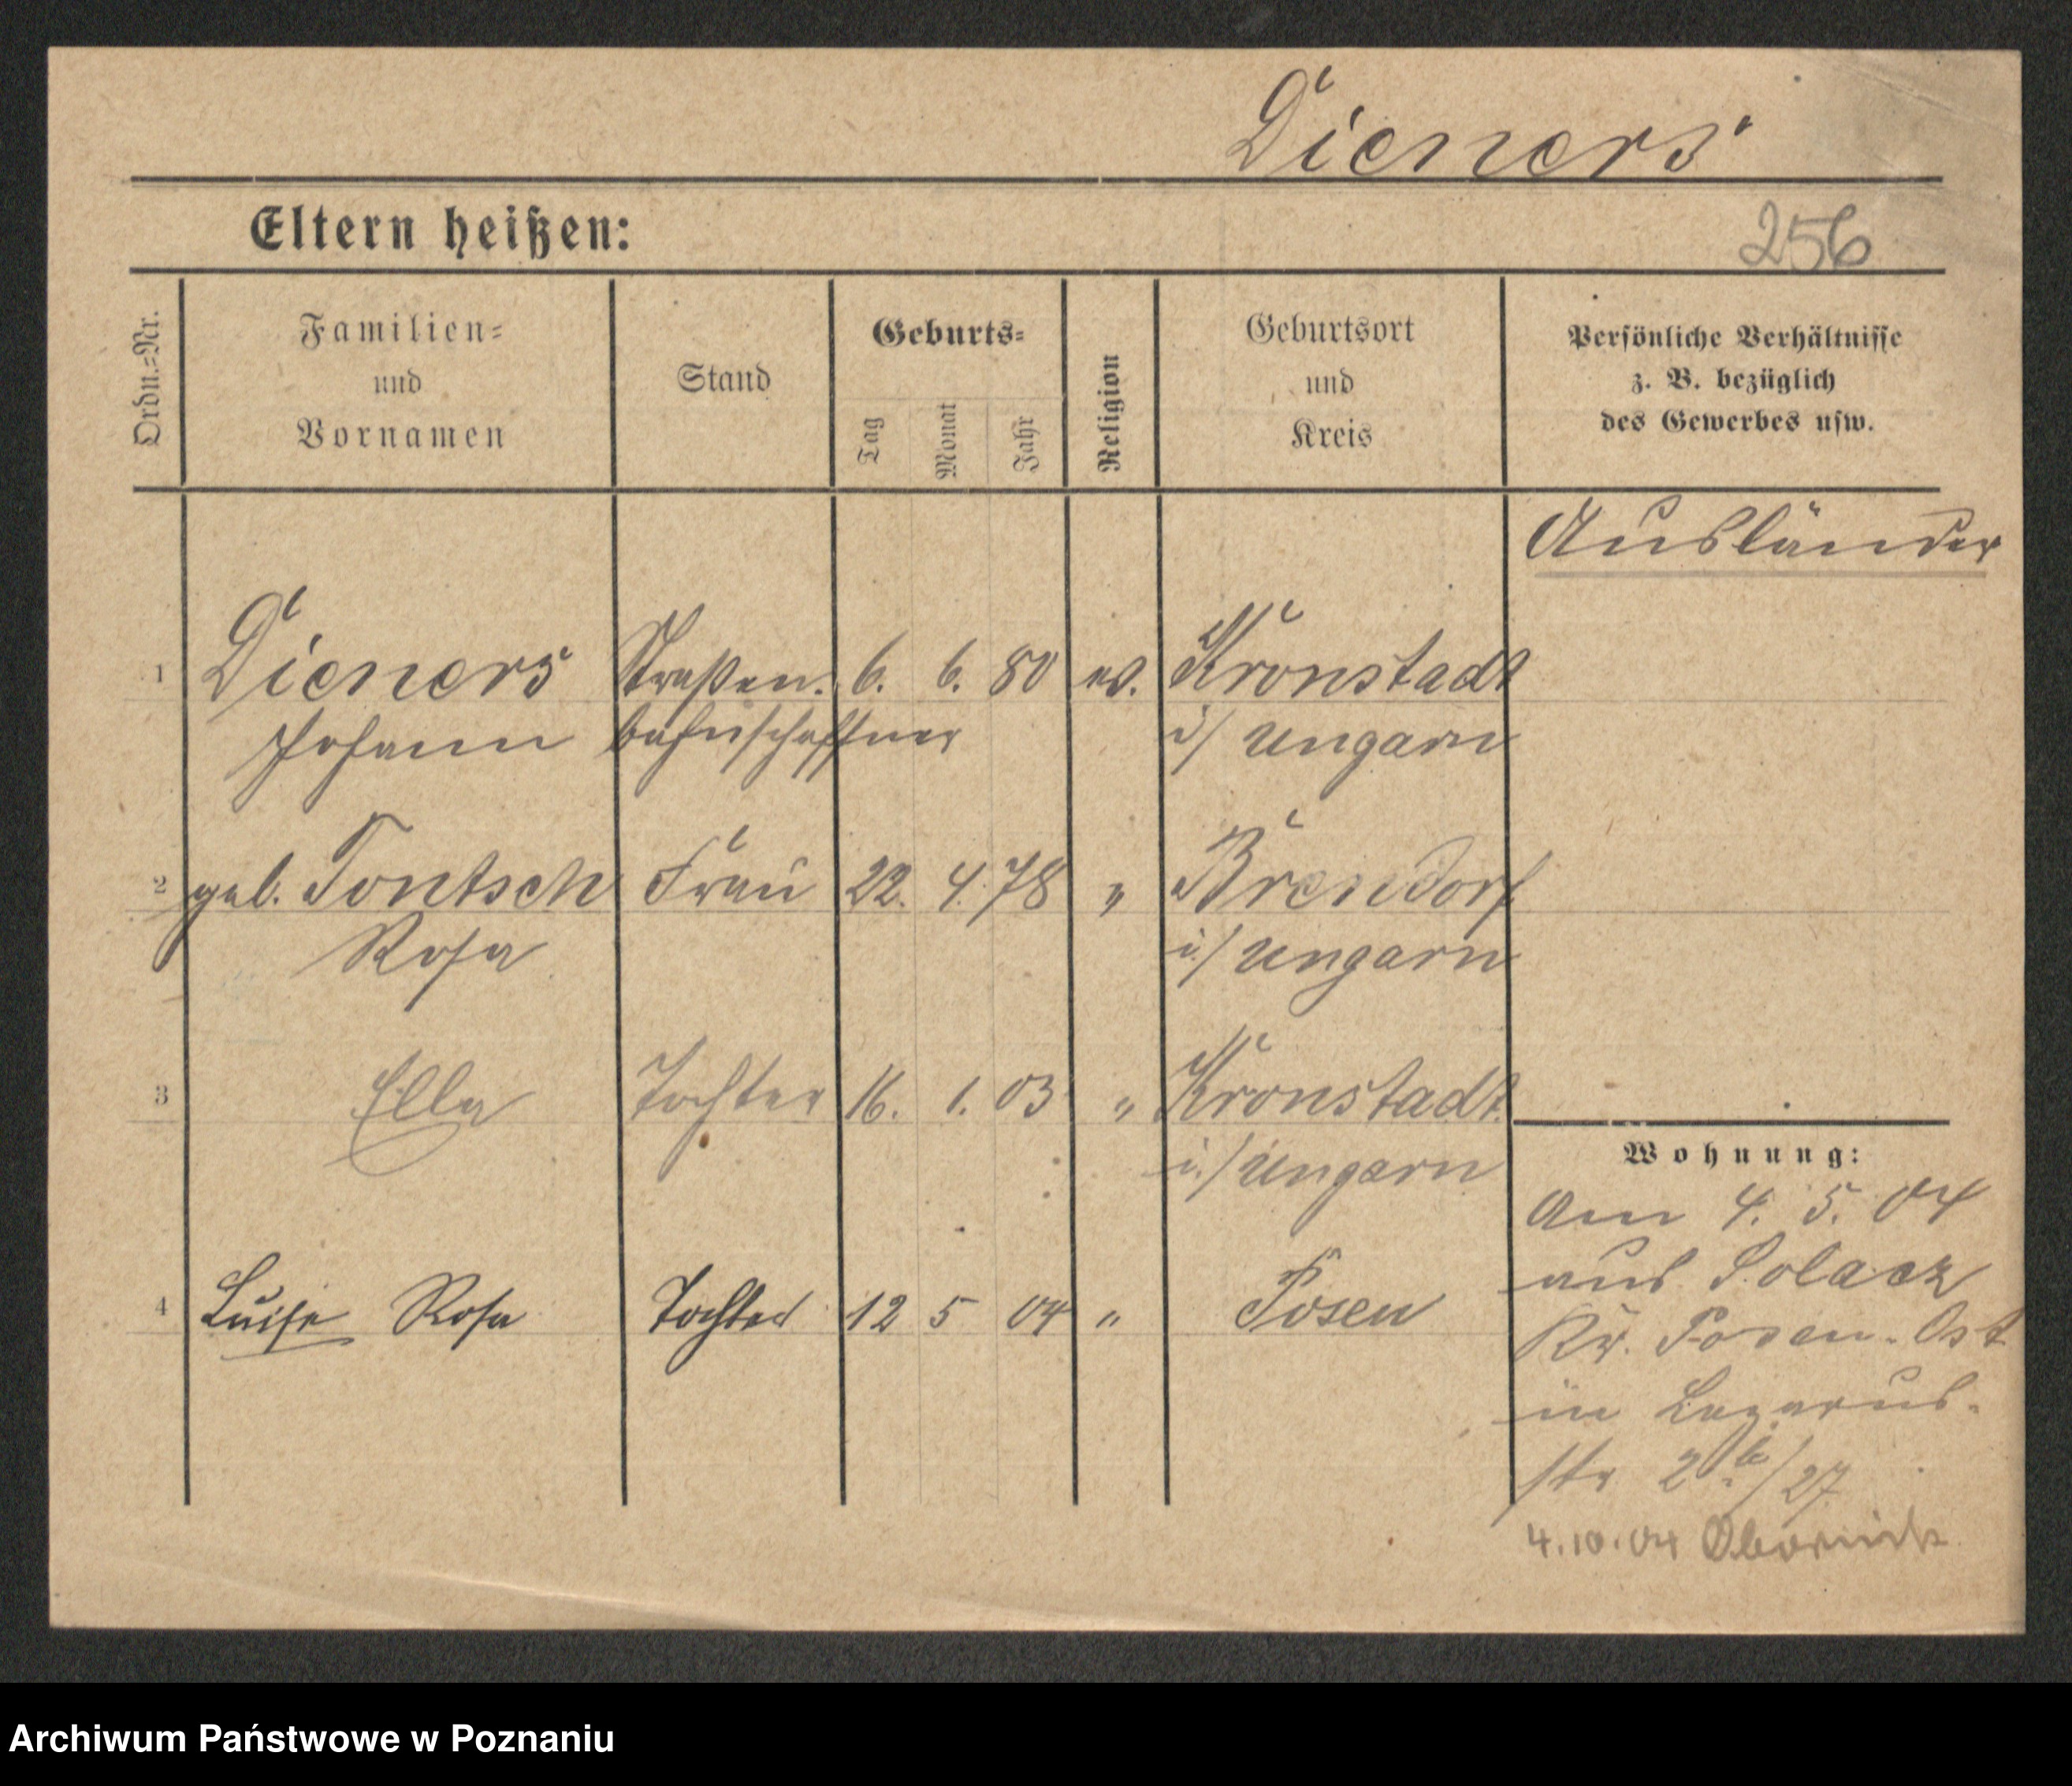 Dieners
Eltern heißen:
256
Ordn.=Nr.
Familien=
und
Vornamen
Stand
Geburts=
Tag
Monat
Jahr
Religion
Geburtsort
und
Kreis
Persönliche Verhältnisse
z. B. bezüglich
des Gewerbes usw.
Ausländer
1 Dieners Straßen. 6. 6. 80 ev. Kronstadt
Johann bahnschaffner i/ Ungarn
2 geb. Tontsch Frau 22. 4. 78 " Brendorf
Rosa i/ Ungarn
3 Ella Tochter 16. 1. 03 " Kronstadt
i/ Ungarn
Wohnung:
Am 4. 5. 04
aus Solacz
4 Luise Rosa Tochter 12 5 04 " Posen
Kr. Posen-Ost
in Lazarus-
str. 2b/27
4.10.04 Obornik
Archiwum Państwowe w Poznaniu